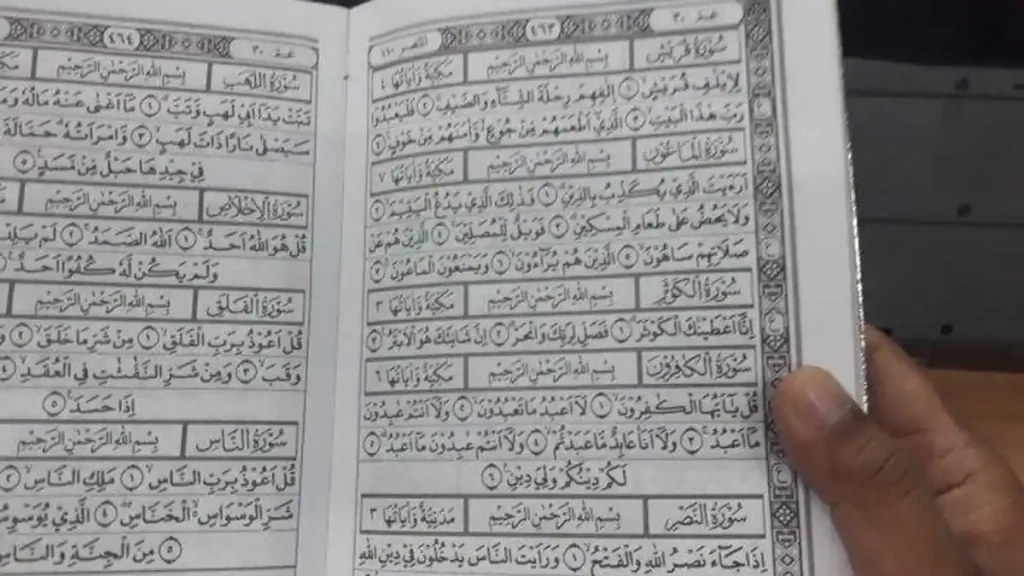 عم ٣٠ ٤٦٣ النصر ١١٠
سُورَةُ قُرَيْشٍ بِسْمِ اللهِ الرَّحْمٰنِ الرَّحِيْمِ مَكِّيَّةٌ وَاٰيَاتُهَا ٤
لِاِيْلٰفِ قُرَيْشٍ ١ اٖلٰفِهِمْ رِحْلَةَ الشِّتَآءِ وَالصَّيْفِ ٢ فَلْيَعْبُدُوْا
رَبَّ هٰذَا الْبَيْتِ ٣ الَّذِيْٓ اَطْعَمَهُمْ مِنْ جُوْعٍ وَاٰمَنَهُمْ مِنْ خَوْفٍ ٤
سُورَةُ الْمَاعُوْنِ بِسْمِ اللهِ الرَّحْمٰنِ الرَّحِيْمِ مَكِّيَّةٌ وَاٰيَاتُهَا ٧
اَرَءَيْتَ الَّذِيْ يُكَذِّبُ بِالدِّيْنِ ١ فَذٰلِكَ الَّذِيْ يَدُعُّ الْيَتِيْمَ ٢
وَلَا يَحُضُّ عَلٰى طَعَامِ الْمِسْكِيْنِ ٣ فَوَيْلٌ لِلْمُصَلِّيْنَ ٤ الَّذِيْنَ هُمْ عَنْ
صَلَاتِهِمْ سَاهُوْنَ ٥ الَّذِيْنَ هُمْ يُرَآءُوْنَ ٦ وَيَمْنَعُوْنَ الْمَاعُوْنَ ٧
سُورَةُ الْكَوْثَرِ بِسْمِ اللهِ الرَّحْمٰنِ الرَّحِيْمِ مَكِّيَّةٌ وَاٰيَاتُهَا ٣
اِنَّآ اَعْطَيْنٰكَ الْكَوْثَرَ ١ فَصَلِّ لِرَبِّكَ وَانْحَرْ ٢ اِنَّ شَانِئَكَ هُوَ الْاَبْتَرُ ٣
سُورَةُ الْكَافِرُوْنَ بِسْمِ اللهِ الرَّحْمٰنِ الرَّحِيْمِ مَكِّيَّةٌ وَاٰيَاتُهَا ٦
قُلْ يٰٓاَيُّهَا الْكٰفِرُوْنَ ١ لَآ اَعْبُدُ مَا تَعْبُدُوْنَ ٢ وَلَآ اَنْتُمْ عٰبِدُوْنَ
مَآ اَعْبُدُ ٣ وَلَآ اَنَا عَابِدٌ مَّا عَبَدْتُّمْ ٤ وَلَآ اَنْتُمْ عٰبِدُوْنَ مَآ اَعْبُدُ ٥
لَكُمْ دِيْنُكُمْ وَلِيَ دِيْنِ ٦
سُورَةُ النَّصْرِ بِسْمِ اللهِ الرَّحْمٰنِ الرَّحِيْمِ مَدَنِيَّةٌ وَاٰيَاتُهَا ٣
اِذَا جَآءَ نَصْرُ اللهِ وَالْفَتْحُ ١ وَرَاَيْتَ النَّاسَ يَدْخُلُوْنَ فِيْ دِيْنِ اللهِ
عم ٣٠ ٤٦٤
سُورَةُ اللَّهَبِ بِسْمِ اللهِ الرَّحْمٰنِ الرَّحِيْمِ
تَبَّتْ يَدَآ اَبِيْ لَهَبٍ وَّتَبَّ ١ مَآ اَغْنٰى عَنْهُ مَالُهٗ
سَيَصْلٰى نَارًا ذَاتَ لَهَبٍ ٣ وَامْرَاَتُهٗ حَمَّالَةَ
فِيْ جِيْدِهَا حَبْلٌ مِّنْ مَّسَدٍ ٥
سُورَةُ الْاِخْلَاصِ بِسْمِ اللهِ الرَّحْمٰنِ الرَّحِيْمِ
قُلْ هُوَ اللهُ اَحَدٌ ١ اَللهُ الصَّمَدُ ٢ لَمْ يَلِدْ
وَلَمْ يَكُنْ لَّهٗ كُفُوًا اَحَدٌ
سُورَةُ الْفَلَقِ بِسْمِ اللهِ الرَّحْمٰنِ الرَّحِيْمِ
قُلْ اَعُوْذُ بِرَبِّ الْفَلَقِ ١ مِنْ شَرِّ مَا خَلَقَ ٢
وَقَبَ ٣ وَمِنْ شَرِّ النَّفّٰثٰتِ فِى الْعُقَدِ ٤
اِذَا حَسَدَ ٥
سُورَةُ النَّاسِ بِسْمِ اللهِ الرَّحْمٰنِ الرَّحِيْمِ
قُلْ اَعُوْذُ بِرَبِّ النَّاسِ ١ مَلِكِ النَّاسِ ٢
شَرِّ الْوَسْوَاسِ الْخَنَّاسِ ٤ الَّذِيْ يُوَسْوِسُ
مِنَ الْجِنَّةِ وَالنَّاسِ